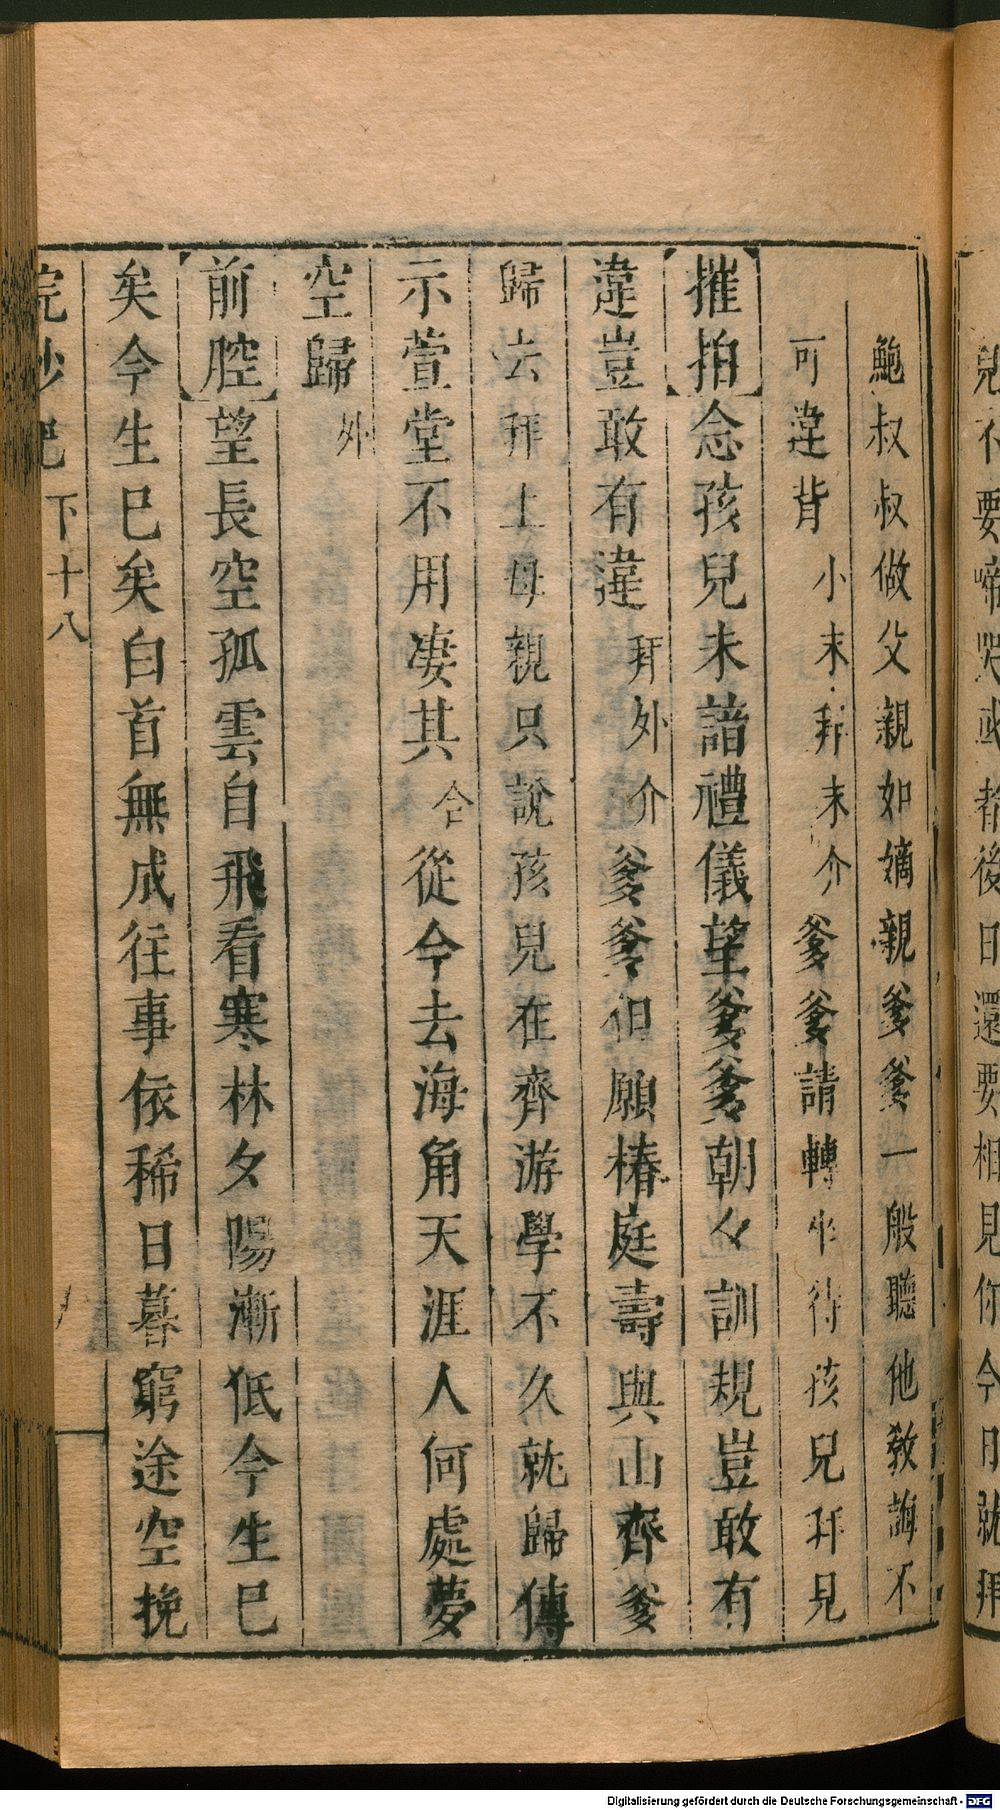 兒不要啼哭或者後日還要相見你今日就拜
鮑叔叔做父親如嫡親爹爹一般聽他教誨不
可違背小末拜末介爹爹請轉坐待孩兒拜見
【摧拍】念孩兒未諳禮儀望爹爹朝々訓規豈敢有
違豈敢有違拜外介爹爹但願椿庭壽與山齊爹
歸去拜上母親只說孩兒在齊游學不久就歸傳
示萱堂不用凄其合從今去海角天涯人何處夢
空歸外
【前腔】望長空孤雲自飛看寒林夕陽漸低今生已
矣今生已矣白首無成往事依稀日暮窮途空挽
浣紗記 下十八
Digitalisierung gefördert durch die Deutsche Forschungsgemeinschaft - DFG